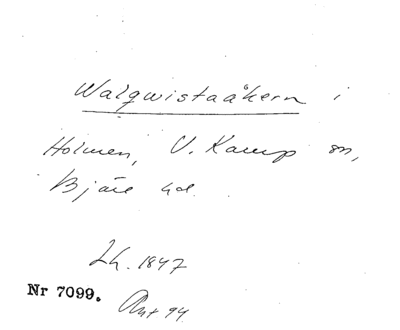 Walqwistaåkern i
Holmen, V. Karup sn,
Bjäre hd.
Lh. 1847
Nr 7099.
Akt 94